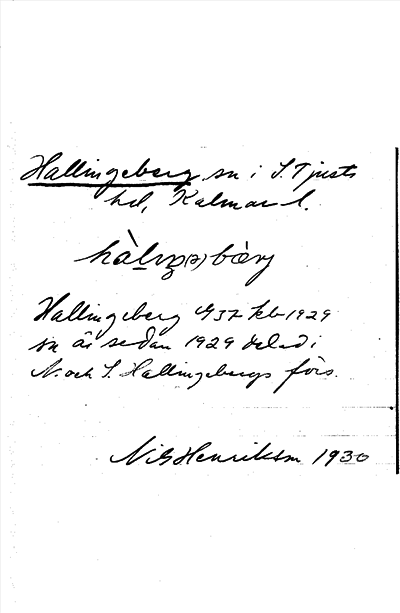 Hallingeberg sn i S. Tjusts
hd, Kalmar l.
Hallingeberg G 37 kb 1929
sn är sedan 1929 delad i
N. och S. Hallingebergs förs.
Nils Henrikson 1930